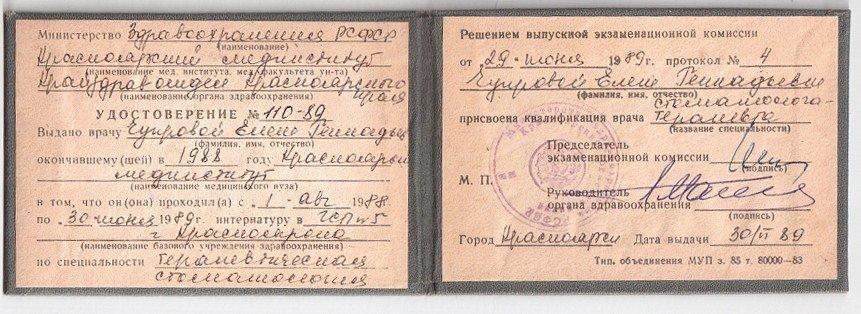 Министерство Здравоохранения РСФСР
(наименование)
Красноярский мединститут
(наименование мед. института, мед. факультета ун-та)
Крайздравотдел Красноярского края
(наименование органа здравоохранения)
УДОСТОВЕРЕНИЕ № 110-89
Выдано врачу Чупровой Елене Геннадьев
(фамилия, имя, отчество)
окончившему (шей) в 1988 году Красноярский
мединститут
(наименование медицинского вуза)
в том, что он(она) проходил(а) с 1 авг 1988
по 30 июня 1989г. интернатуру в ГСП №5
г Красноярска
(наименование базового учреждения здравоохранения)
по специальности терапевтическая
стоматология
Решением выпускной экзаменационной комиссии
от 29 июня 1989г. протокол № 4
Чупровой Елене Геннадьевне
(фамилия, имя, отчество)
стоматолога-
присвоена квалификация врача терапевта
(название специальности)
Председатель
экзаменационной комиссии
(подпись)
М. П.
Руководитель
органа здравоохранения
(подпись)
Город Красноярск Дата выдачи 30/VI 89
Тип. объединения МУП з. 85 т. 80000—83